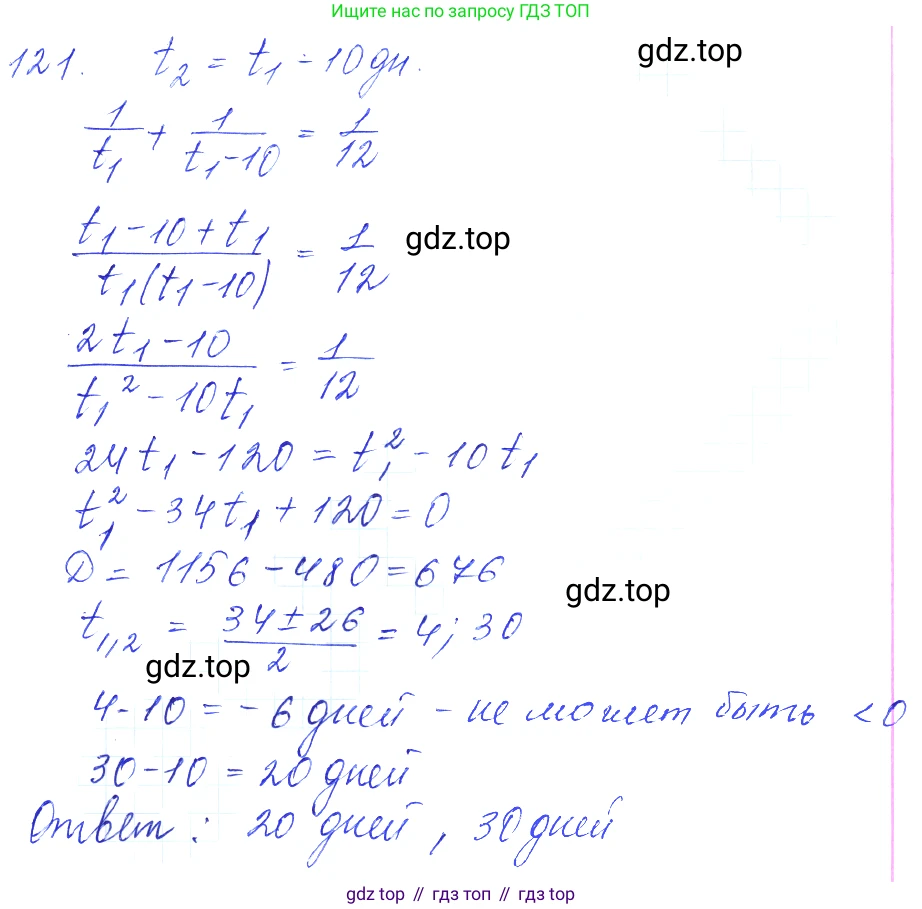 Ищите нас по запросу ГДЗ ТОП
121. t₂ = t₁ - 10 дн.
gdz.top
1/t₁ + 1/(t₁-10) = 1/12
(t₁-10+t₁)/(t₁(t₁-10)) = 1/12
gdz.top
(2t₁-10)/(t₁²-10t₁) = 1/12
24t₁-120 = t₁²-10t₁
t₁²-34t₁+120=0
D = 1156-480=676
gdz.top
t₁,₂ = (34±26)/2 = 4; 30
gdz.top
4-10 = -6 дней - не может быть <0
30-10 = 20 дней
Ответ: 20 дней, 30 дней
gdz top // гдз топ // gdz top